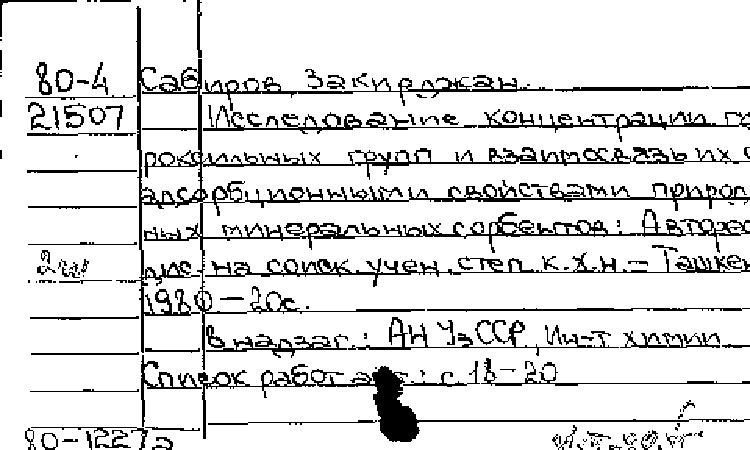 80-4 Сабиров Закирджан
21507 Исследование концентрации гид
роксильных групп и взаимосвязь их с
адсорбционными свойствами природ
ных минеральных сорбентов: Авторе
дис. на соиск. учен. степ. к.х.н. – Ташкен
1980 – 20с.
В надзаг.: АН УзССР, Ин-т химии
Список работ авт.: с. 18-20
80-12272